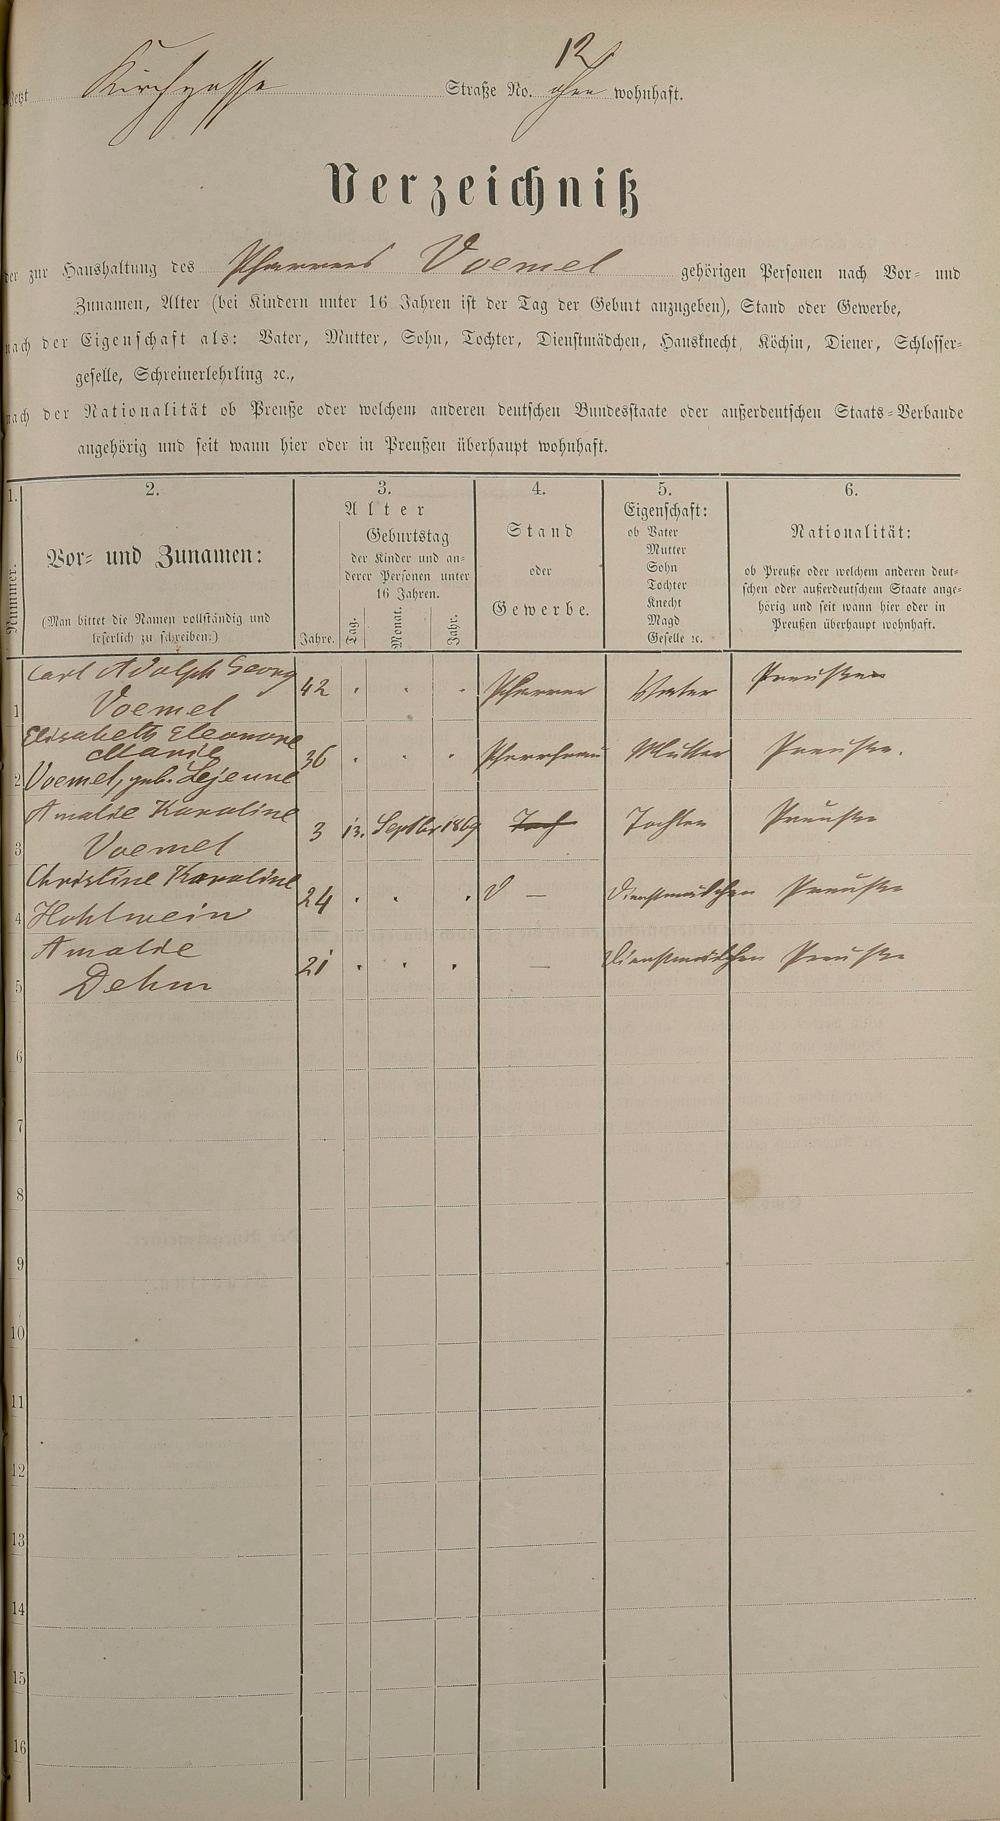 12
jetzt Kirchgasse Straße No. ohne wohnhaft.
Verzeichniß
der zur Haushaltung des Pfarrers Voemel gehörigen Personen nach Vor- und
Zunamen, Alter (bei Kindern unter 16 Jahren ist der Tag der Geburt anzugeben), Stand oder Gewerbe,
nach der Eigenschaft als: Vater, Mutter, Sohn, Tochter, Dienstmädchen, Hausknecht, Köchin, Diener, Schlosser-
geselle, Schreinerlehrling ꝛc.,
nach der Nationalität ob Preuße oder welchem anderen deutschen Bundesstaate oder außerdeutschen Staats-Verbande
angehörig und seit wann hier oder in Preußen überhaupt wohnhaft.
1. 2. 3. 4. 5. 6.
Nummer.
Vor- und Zunamen:
(Man bittet die Namen vollständig und
leserlich zu schreiben.)
Alter
Jahre.
Geburtstag
der Kinder und an-
derer Personen unter
16 Jahren.
Tag. Monat. Jahr.
Stand
oder
Gewerbe.
Eigenschaft:
ob Vater
Mutter
Sohn
Tochter
Knecht
Magd
Geselle ꝛc.
Nationalität:
ob Preuße oder welchem anderen deut-
schen oder außerdeutschem Staate ange-
hörig und seit wann hier oder in
Preußen überhaupt wohnhaft.
Carl Adolph Georg
1 Voemel 42 . . . Pfarrer Vater Preuße
Elisabeth Eleonore
Marie
2 Voemel, geb. Lejeune 36 . . . Pfarrfrau Mutter Preuße.
Amalie Karoline
3 Voemel 3 13. Septbr 1869 Toch Tochter Preuße
Christine Karoline
4 Hohlwein 24 . . . — Dienstmädchen Preuße
Amalie
5 Dehm 21 . . . — Dienstmädchen Preuße
6
7
8
9
10
11
12
13
14
15
16